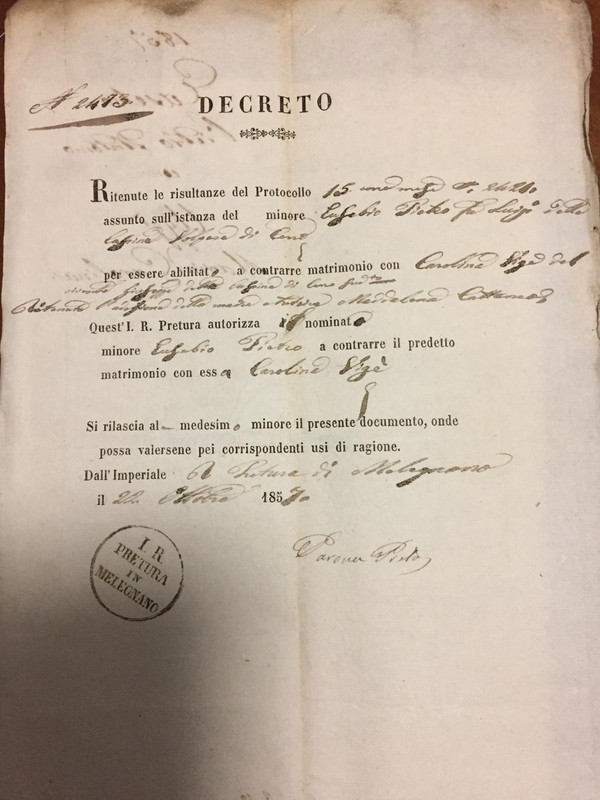 N° 2473 DECRETO
Ritenute le risultanze del Protocollo 15 and. mese N. 2421
assunto sull'istanza del minore Eusebio Pietro fu Luigi della
Cassina Volpera di
per essere abilitato a contrarre matrimonio con Carolina Vigè del
vivente Giuseppe della cassina di
Ritenuto l'assenso della madre Maddalena Cattaneo
Quest'I. R. Pretura autorizza il nominato
minore Eusebio Pietro a contrarre il predetto
matrimonio con essa Carolina Vigè
Si rilascia al medesimo minore il presente documento, onde
possa valersene pei corrispondenti usi di ragione.
Dall'Imperiale R Pretura di Melegnano
il 22 Ottobre 1857
I. R.
PRETURA
IN
MELEGNANO